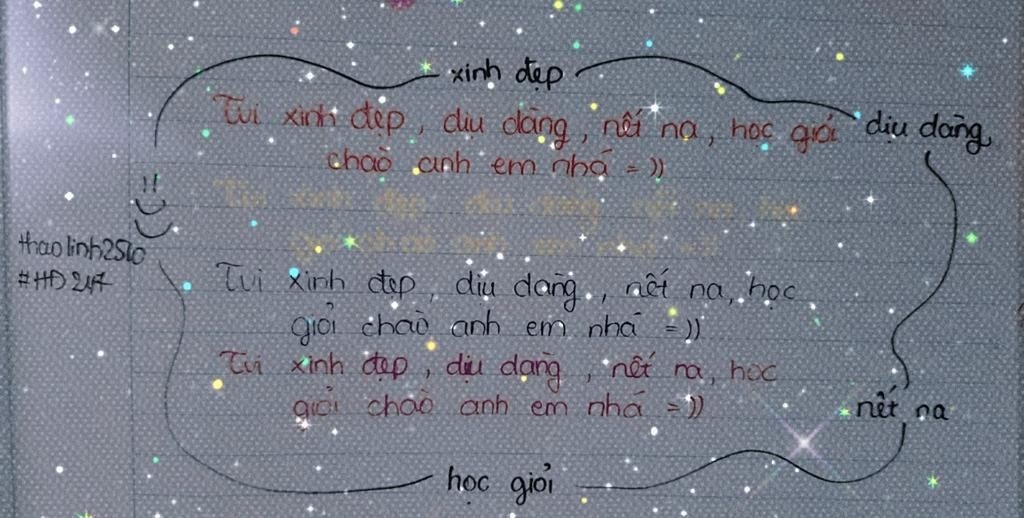 xinh đẹp
Tui xinh đẹp, dịu dàng, nết na, học giỏi
chào anh em nhá =))
dịu dàng
!!
thaolinh2510
#HD247
Tui xinh đẹp, dịu dàng, nết na, học
giỏi chào anh em nhá =))
Tui xinh đẹp, dịu dàng, nết na, học
giỏi chào anh em nhá =))
nết na
học giỏi